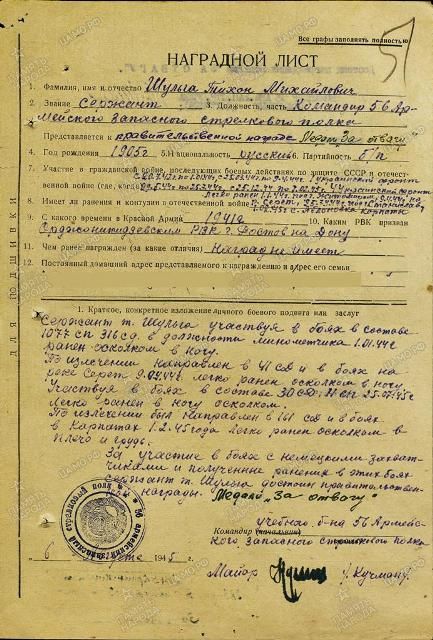 51
Все графы заполнять полностью
НАГРАДНОЙ ЛИСТ
1. Фамилия, имя и отчество Шульга Тихон Михайлович
2. Звание Сержант 3. Должность, часть Командир 56 Ар-
мейского запасного стрелкового полка
Представляется к правительственной награде Медаль "За отвагу"
4. Год рождения 1905г 5. Национальность русский 6. Партийность б/п
7. Участие в гражданской войне, последующих боевых действиях по защите СССР и отечест-
венной войне (где, когда)
8. Имеет ли ранения и контузии в отечественной войне
9. С какого времени в Красной Армии 1941г 10. Каким РВК призван
Орджоникидзевским РВК г. Ростов на Дону
11. Чем ранее награжден (за какие отличия) Наград не имеет
12. Постоянный домашний адрес представляемого к награждению и адрес его семьи
ДЛЯ ПОДШИВКИ
1. Краткое, конкретное изложение личного боевого подвига или заслуг
Сержант т. Шульга участвуя в боях в составе
1077 сп 316 сд. в должности минометчика 1.01.44г
ранен осколком в ногу.
По излечении направлен в 41 сд и в боях на
реке Серет 9.04.44г. легко ранен осколком в ногу
Участвуя в боях в составе 30 сд 25.07.45г
легко ранен в ногу осколком.
По излечении был направлен в 161 сд и в боях
в Карпатах 1.2.45 года легко ранен осколком в
плечо и грудь.
За участие в боях с немецкими захват-
чиками и полученные ранения в этих боях
сержант т. Шульга достоин правительствен-
ной награды Медаль "За отвагу"
Командир (начальник) учебного б-на 56 Армейс-
кого запасного стрелкового полка
6 марта 1945 г.
Майор /Кучман/